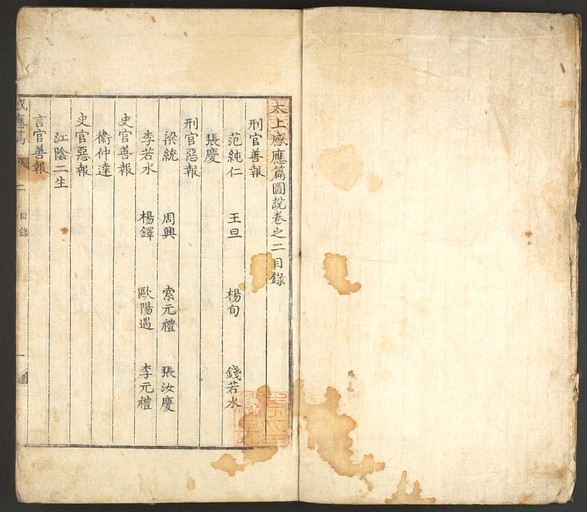 太上感應篇圖說卷之二目錄
刑官善報
范純仁 王旦 楊旬 錢若水
張慶
刑官惡報
梁統 周興 索元禮 張汝慶
李若水 楊鐸 歐陽遇 李元禮
史官善報
衛仲達
史官惡報
江陰二生
言官善報
感應篇 二 目錄 一